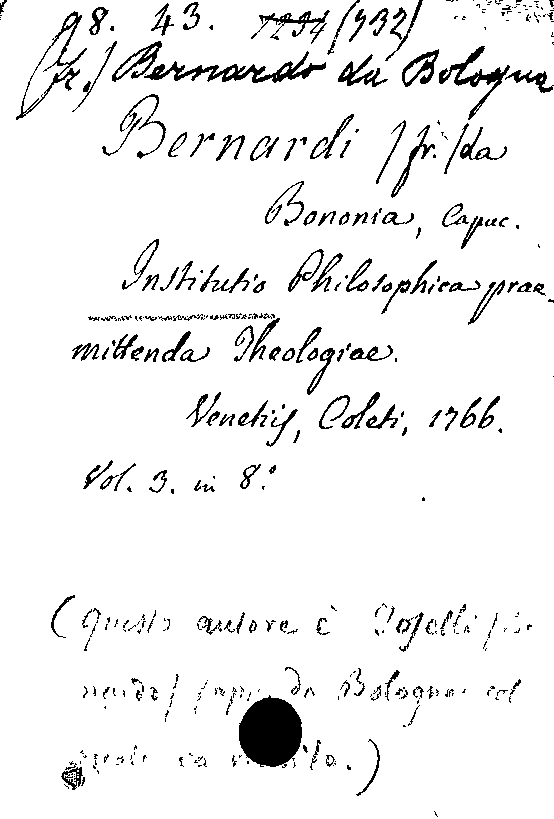 98. 43. 1234 (932)
(fr.) Bernardo da Bologna
Bernardi / fr. / da
Bononia, Capuc.
Institutio Philosophica prae-
mittenda Theologiae.
Venetiis, Coleti, 1766.
Vol. 3. in 8.º
(questo autore è Toselli / Ber-
nardo / Capuc. da Bologna: col
quale va